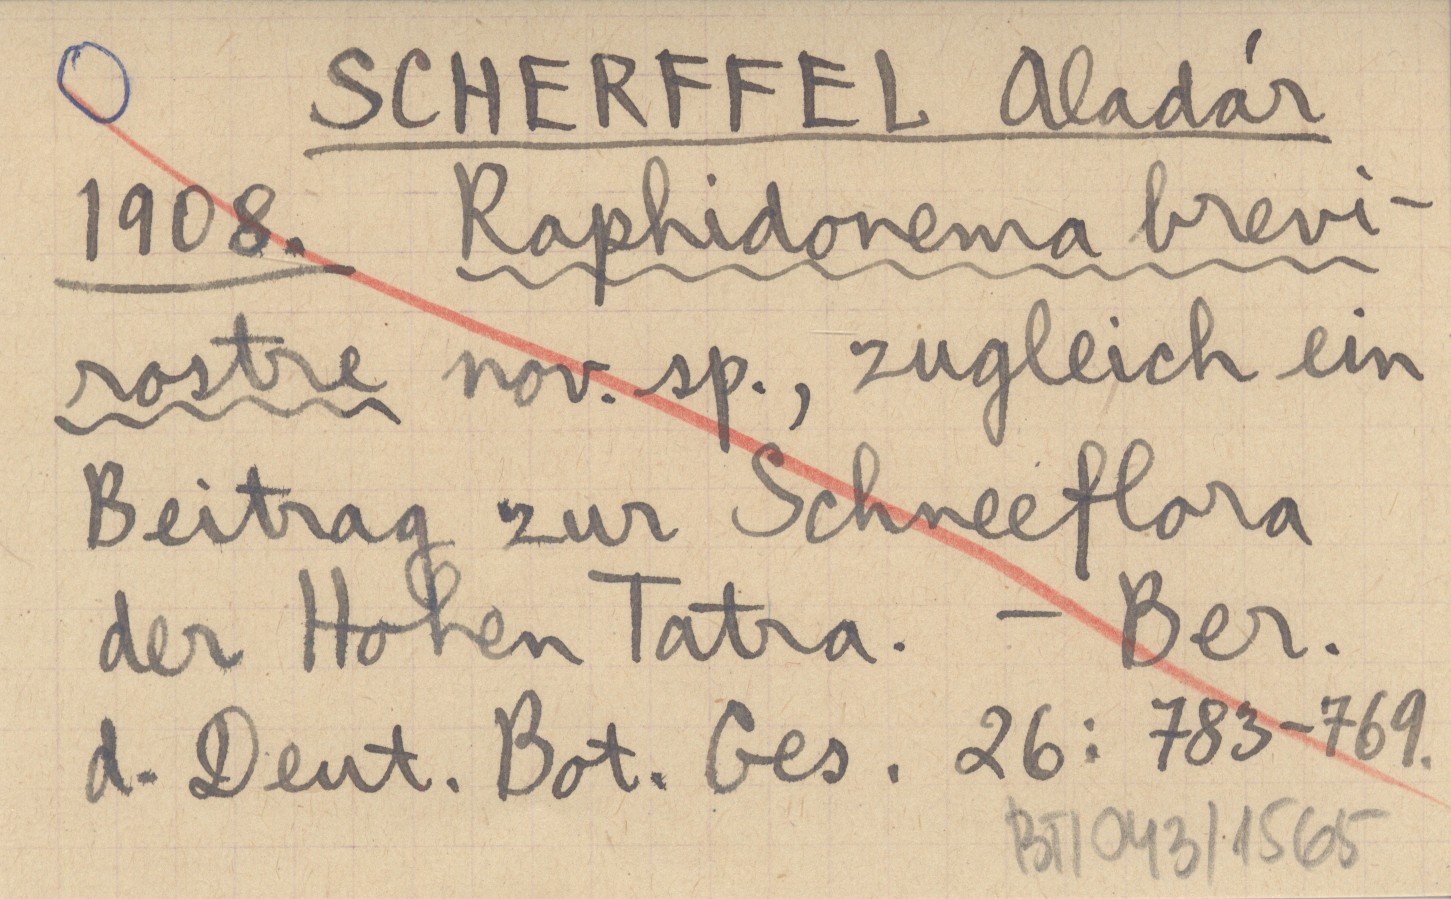 SCHERFFEL Aladár
1908. Raphidonema brevi-
rostre nov. sp., zugleich ein
Beitrag zur Schneeflora
der Hohen Tatra. – Ber.
d. Deut. Bot. Ges. 26: 783-769.
BTI043/1565